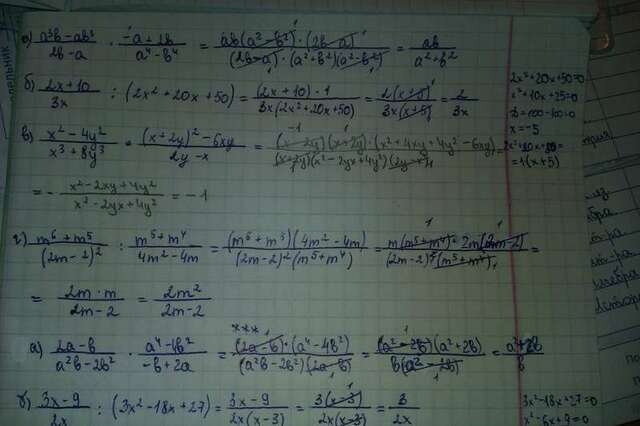 а) (a³b - ab³)/(2b - a) · (-a + 2b)/(a⁴ - b⁴) = (ab(a² - b²)·(2b - a))/((2b - a)·(a² + b²)(a² - b²)) = ab/(a² + b²)
б) (2x + 10)/(3x) : (2x² + 20x + 50) = ((2x + 10)·1)/(3x(2x² + 20x + 50)) = (2(x + 5))/(3x(x + 5)) = 2/(3x)
2x² + 20x + 50 = 0
x² + 10x + 25 = 0
D = 100 - 100 = 0
x = -5
= 1(x + 5)
в) (x² - 4y²)/(x³ + 8y³) : ((x + 2y)² - 6xy)/(2y - x) = ((x - 2y)(x + 2y)·(x² + 4xy + 4y² - 6xy))/((x + 2y)(x² - 2yx + 4y²)(2y - x)) =
= - (x² - 2xy + 4y²)/(x² - 2yx + 4y²) = -1
г) (m⁶ + m⁵)/(2m - 2)² : (m⁵ + m⁴)/(4m² - 4m) = ((m⁶ + m⁵)(4m² - 4m))/((2m - 2)²(m⁵ + m⁴)) = (m(m⁵ + m⁴)·2m(2m - 2))/((2m - 2)²(m⁵ + m⁴)) =
= (2m · m)/(2m - 2) = 2m²/(2m - 2)
***
а) (2a - b)/(a²b - 2b²) · (a⁴ - 4b²)/(-b + 2a) = ((2a - b)·(a⁴ - 4b²))/((a²b - 2b²)(2a - b)) = ((a² - 2b)(a² + 2b))/(b(a² - 2b)) = (a² + 2b)/b
б) (3x - 9)/(2x) : (3x² - 18x + 27) = (3x - 9)/(2x(x - 3)) = (3(x - 3))/(2x(x - 3)) = 3/(2x)
3x² - 18x + 27 = 0
x² - 6x + 9 = 0